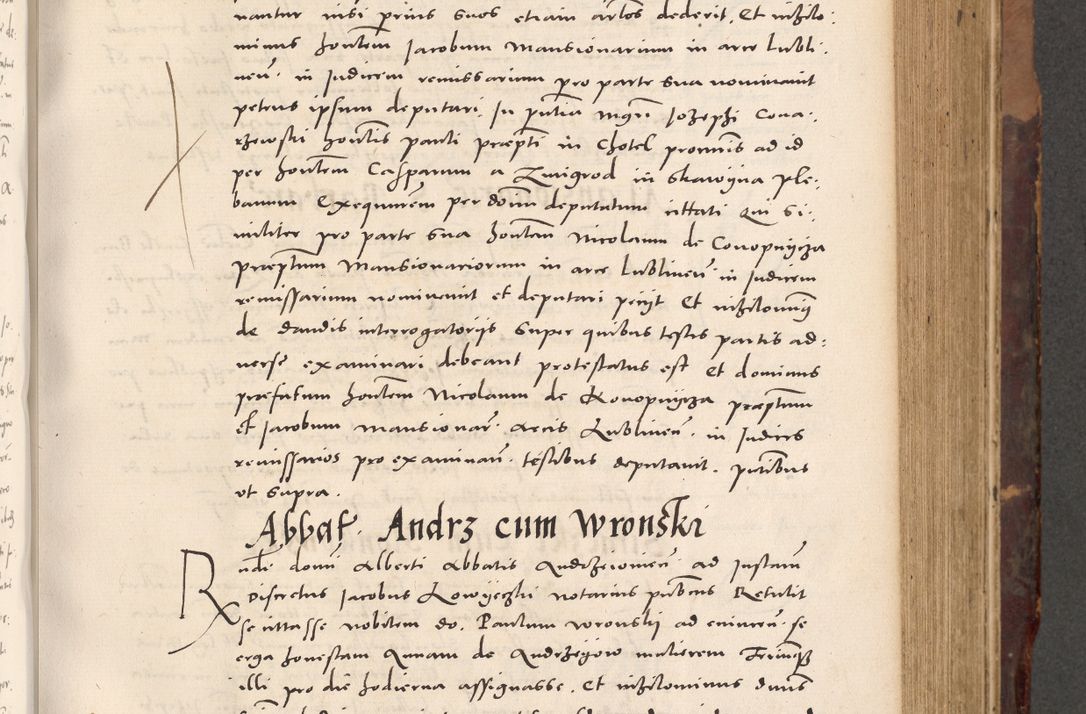 nantur nisi prius suos etiam artlos dederit. Et nihilo:
minus hontem Jacobum Mansionarium in arce Lubli:
nen in Judicem remissarium pro parte sua nominavit
petens ipsum deputari. In pntia mgri Josephi Cona:
rzewski hontis pauli praepti in Chotel promnis ad id
per hontem Casparum a Zmigrod in skawyna Ple:
banum Exequutorem per domin deputatum ittati Qui si:
militer pro parte sua hontem Nicolaum de Conopnycza
praeptum Mansionariorum in arce Lublinen in Judicem
remissarium nominavit et deputari petyt Et nihilominus
de dandis interrogatoriis super quibus testes partis ad:
verse examinari debeant protestatus est Et dominus
praefatum hontem Nicolaum de Konopnycza praeptum
et Jacobum Mansionar Arcis Lublinen in Judices
remissarios pro examinan testibus deputavit. pntibus
ut supra.
Abbat. Andrz cum Wronski
Rndi domi Alberti Abbatis Andrzeiowien ad Instam
Discretus Jacobus Lowyeczki notarius publicus Retulit
se cittasse nobilem do. Paulum wronski ad evincen se
erga honestam Annam de Andrzeyow mulierem Terminumque
illi pro die hodierna assignasse. Et nihilominus dnus